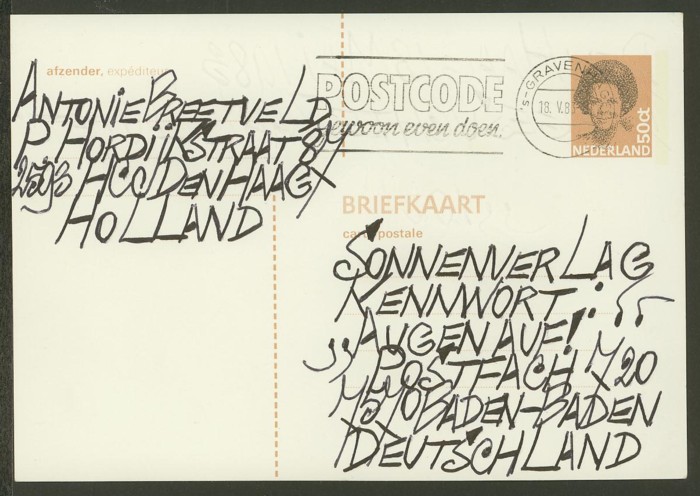 afzender, expéditeur
ANTONIE BREETVELD
P HORDIJKSTRAAT 8
HOLLAND
POSTCODE
gewoon even doen.
's-GRAVEN
18. V.8
50ct
NEDERLAND
BRIEFKAART
carte postale
SONNENVERLAG
KENNWORT
„AUGEN AUF!"
POSTFACH 720
7570 BADEN-BADEN
DEUTSCHLAND